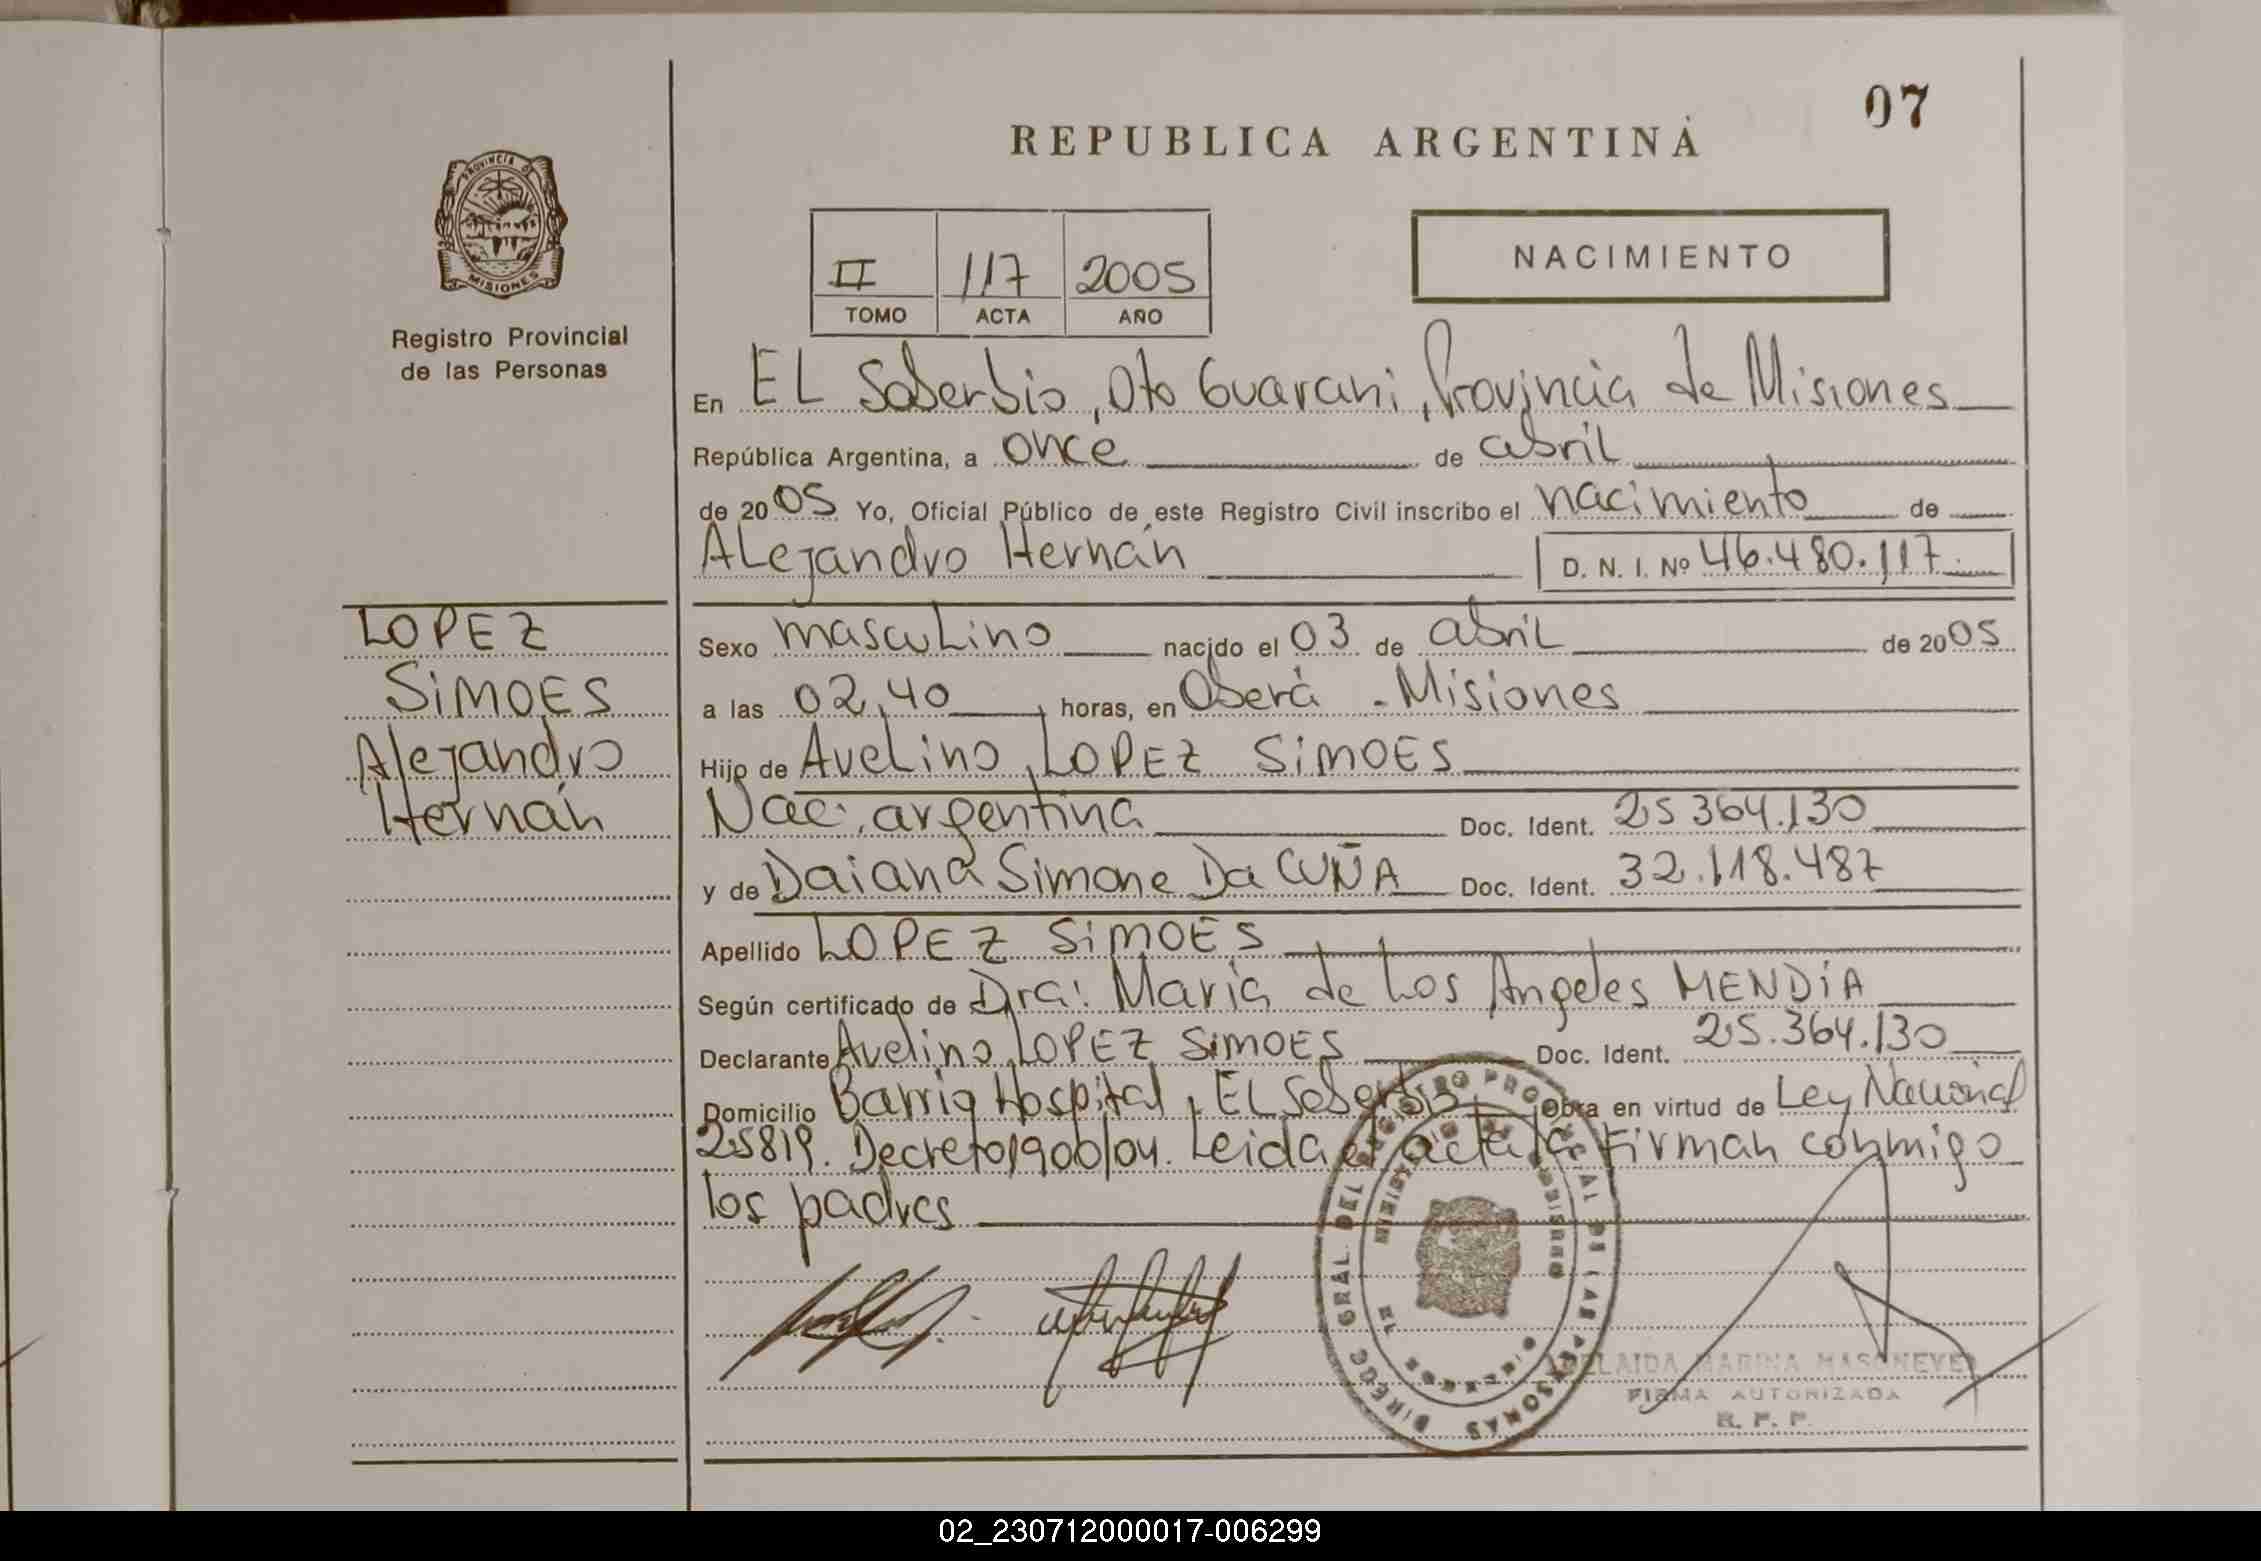 07
REPUBLICA ARGENTINA
PROVINCIA DE
MISIONES
Registro Provincial
de las Personas
NACIMIENTO
II 117 2005
TOMO ACTA AÑO
En EL Soberbio, Dto Guarani, Provincia de Misiones
República Argentina, a once de abril
de 2005 Yo, Oficial Público de este Registro Civil inscribo el nacimiento de
Alejandro Hernán D. N. I. Nº 46.480.117
LOPEZ
SiMOES
Alejandro
Hernán
Sexo masculino nacido el 03 de abril de 2005
a las 02,40 horas, en Oberá - Misiones
Hijo de Avelino LOPEZ SiMOES
Nac. argentina Doc. Ident. 25.364.130
y de Daiana Simone Da CUÑA Doc. Ident. 32.118.487
Apellido LOPEZ SiMOES
Según certificado de Dra: Maria de Los Angeles MENDiA
Declarante Avelino LOPEZ SiMOES Doc. Ident. 25.364.130
Domicilio Barrio Hospital, EL Soberbio Obra en virtud de Ley Nacional
25819. Decreto 1900/04. Leida el acta la firman conmigo
los padres
DIRECC GRAL. DEL REGISTRO PROVINCIAL DE LAS PERSONAS
MINISTERIO DE GOBIERNO
MARINA
FIRMA AUTORIZADA
R. P. P.
02_230712000017-006299